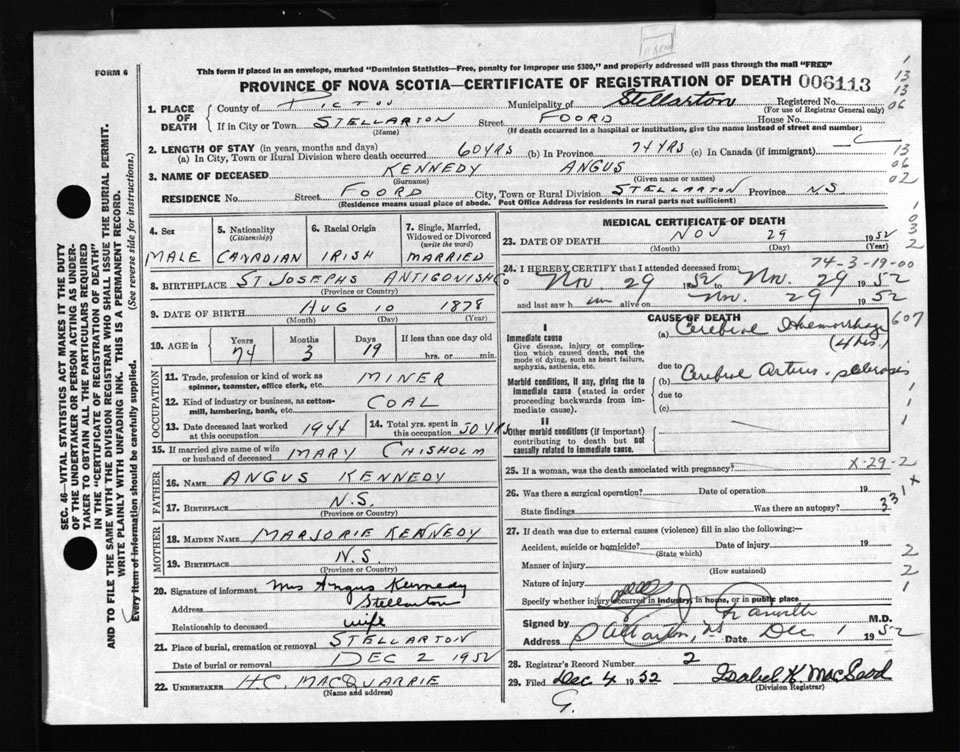 FORM 6
This form if placed in an envelope, marked "Dominion Statistics—Free, penalty for improper use $300," and properly addressed will pass through the mail "FREE"
PROVINCE OF NOVA SCOTIA—CERTIFICATE OF REGISTRATION OF DEATH 006113
1. PLACE OF DEATH County of PICTOU Municipality of Stellarton Registered No.
(For use of Registrar General only)
If in City or Town STELLARTON Street FOORD House No.
(Name) (If death occurred in a hospital or institution, give the name instead of street and number)
2. LENGTH OF STAY (in years, months and days)
(a) In City, Town or Rural Division where death occurred 60 YRS (b) In Province 74 YRS (c) In Canada (if immigrant)
3. NAME OF DECEASED KENNEDY ANGUS
(Surname) (Given name or names)
RESIDENCE No. Street FOORD City, Town or Rural Division STELLARTON Province N.S.
(Residence means usual place of abode. Post Office Address for residents in rural parts not sufficient)
4. Sex 5. Nationality (Citizenship) 6. Racial Origin 7. Single, Married, Widowed or Divorced (write the word)
MALE CANADIAN IRISH MARRIED
8. BIRTHPLACE ST JOSEPHS ANTIGONISH CO
(Province or Country)
9. DATE OF BIRTH AUG 10 1878
(Month) (Day) (Year)
10. AGE in Years Months Days If less than one day old
74 3 19 hrs. or min.
OCCUPATION
11. Trade, profession or kind of work as spinner, teamster, office clerk, etc. MINER
12. Kind of industry or business, as cotton-mill, lumbering, bank, etc. COAL
13. Date deceased last worked at this occupation 1944 14. Total yrs. spent in this occupation 50 YRS
15. If married give name of wife or husband of deceased MARY CHISHOLM
FATHER
16. NAME ANGUS KENNEDY
17. BIRTHPLACE N.S.
(Province or Country)
MOTHER
18. MAIDEN NAME MARJORIE KENNEDY
19. BIRTHPLACE N.S.
(Province or Country)
20. Signature of informant Mrs Angus Kennedy
Address Stellarton
Relationship to deceased wife
21. Place of burial, cremation or removal STELLARTON
Date of burial or removal DEC 2 1952
22. UNDERTAKER H.C. MACQUARRIE
(Name and address)
MEDICAL CERTIFICATE OF DEATH
23. DATE OF DEATH NOV 29 1952
(Month) (Day) (Year)
74-3-19-00
24. I HEREBY CERTIFY that I attended deceased from:
Nov 29 1952 to Nov. 29 1952
and last saw him alive on Nov. 29 1952
CAUSE OF DEATH
I
Immediate cause
Give disease, injury or complication which caused death, not the mode of dying, such as heart failure, asphyxia, asthenia, etc.
(a) Cerebral Haemorrhage 607
due to
Morbid conditions, if any, giving rise to immediate cause (stated in order proceeding backwards from immediate cause).
(b) Cerebral Arterio-sclerosis
due to
(c)
II
Other morbid conditions (if important) contributing to death but not causally related to immediate cause.
25. If a woman, was the death associated with pregnancy? X-29-2
26. Was there a surgical operation? Date of operation 19
State findings Was there an autopsy? 331 X
27. If death was due to external causes (violence) fill in also the following:—
Accident, suicide or homicide? Date of injury 19
(State which)
Manner of injury
(How sustained)
Nature of injury
Specify whether injury occurred in industry, in home, or in public place
Signed by M.D.
Address Stellarton, NS Date Dec 1 1952
28. Registrar's Record Number 2
29. Filed Dec 4 1952 Isabel K. MacLeod
(Division Registrar)
G.
SEC. 46—VITAL STATISTICS ACT MAKES IT THE DUTY
OF THE UNDERTAKER OR PERSON ACTING AS UNDER-
TAKER TO OBTAIN ALL THE PARTICULARS REQUIRED
IN THE "CERTIFICATE OF REGISTRATION OF DEATH"
AND TO FILE THE SAME WITH THE DIVISION REGISTRAR WHO SHALL ISSUE THE BURIAL PERMIT.
WRITE PLAINLY WITH UNFADING INK. THIS IS A PERMANENT RECORD.
Every item of information should be carefully supplied. (See reverse side for instructions.)
1
13
13
06
13
06
02
1
0
3
2
1
1
1
2
2
1